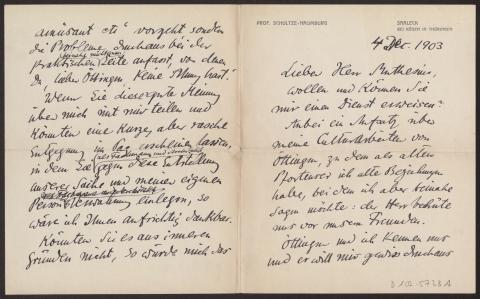 PROF. SCHULTZE-NAUMBURG
SAALECK
BEI KÖSEN IN THÜRINGEN
4 Dec. 1903
Lieber Herr Muthesius,
wollen und können Sie
mir einen Dienst erweisen?
Anbei ein Aufsatz, über
meine Culturarbeiten von
Öttingen, zu dem als alten
ich alte Beziehungen
habe, bei dem ich aber beinahe
sagen möchte: der Herr behüte
uns vor unsern Freunden.
Öttingen und ich kennen uns
und er will mir gewiss durchaus
amüsant etc" vorgeht sondern
die Probleme durchaus bei der
praktischen Seite anfasst, von denen
Du, lieber Öttingen keine Ahnung hast.'
Wenn Sie diese gute Meinung
über mich mit mir teilen und
könnten eine kurze, aber rasche
Entgegnung in erscheinen lassen,
in dem Sie als Fachmann und Architekt
gegen diese Entstellung
unserer Sache und meiner eigenen
einlegen, so
wäre ich Ihnen aufrichtig dankbar.
Könnten Sie es aus inneren
Gründen nicht, so würde mich das